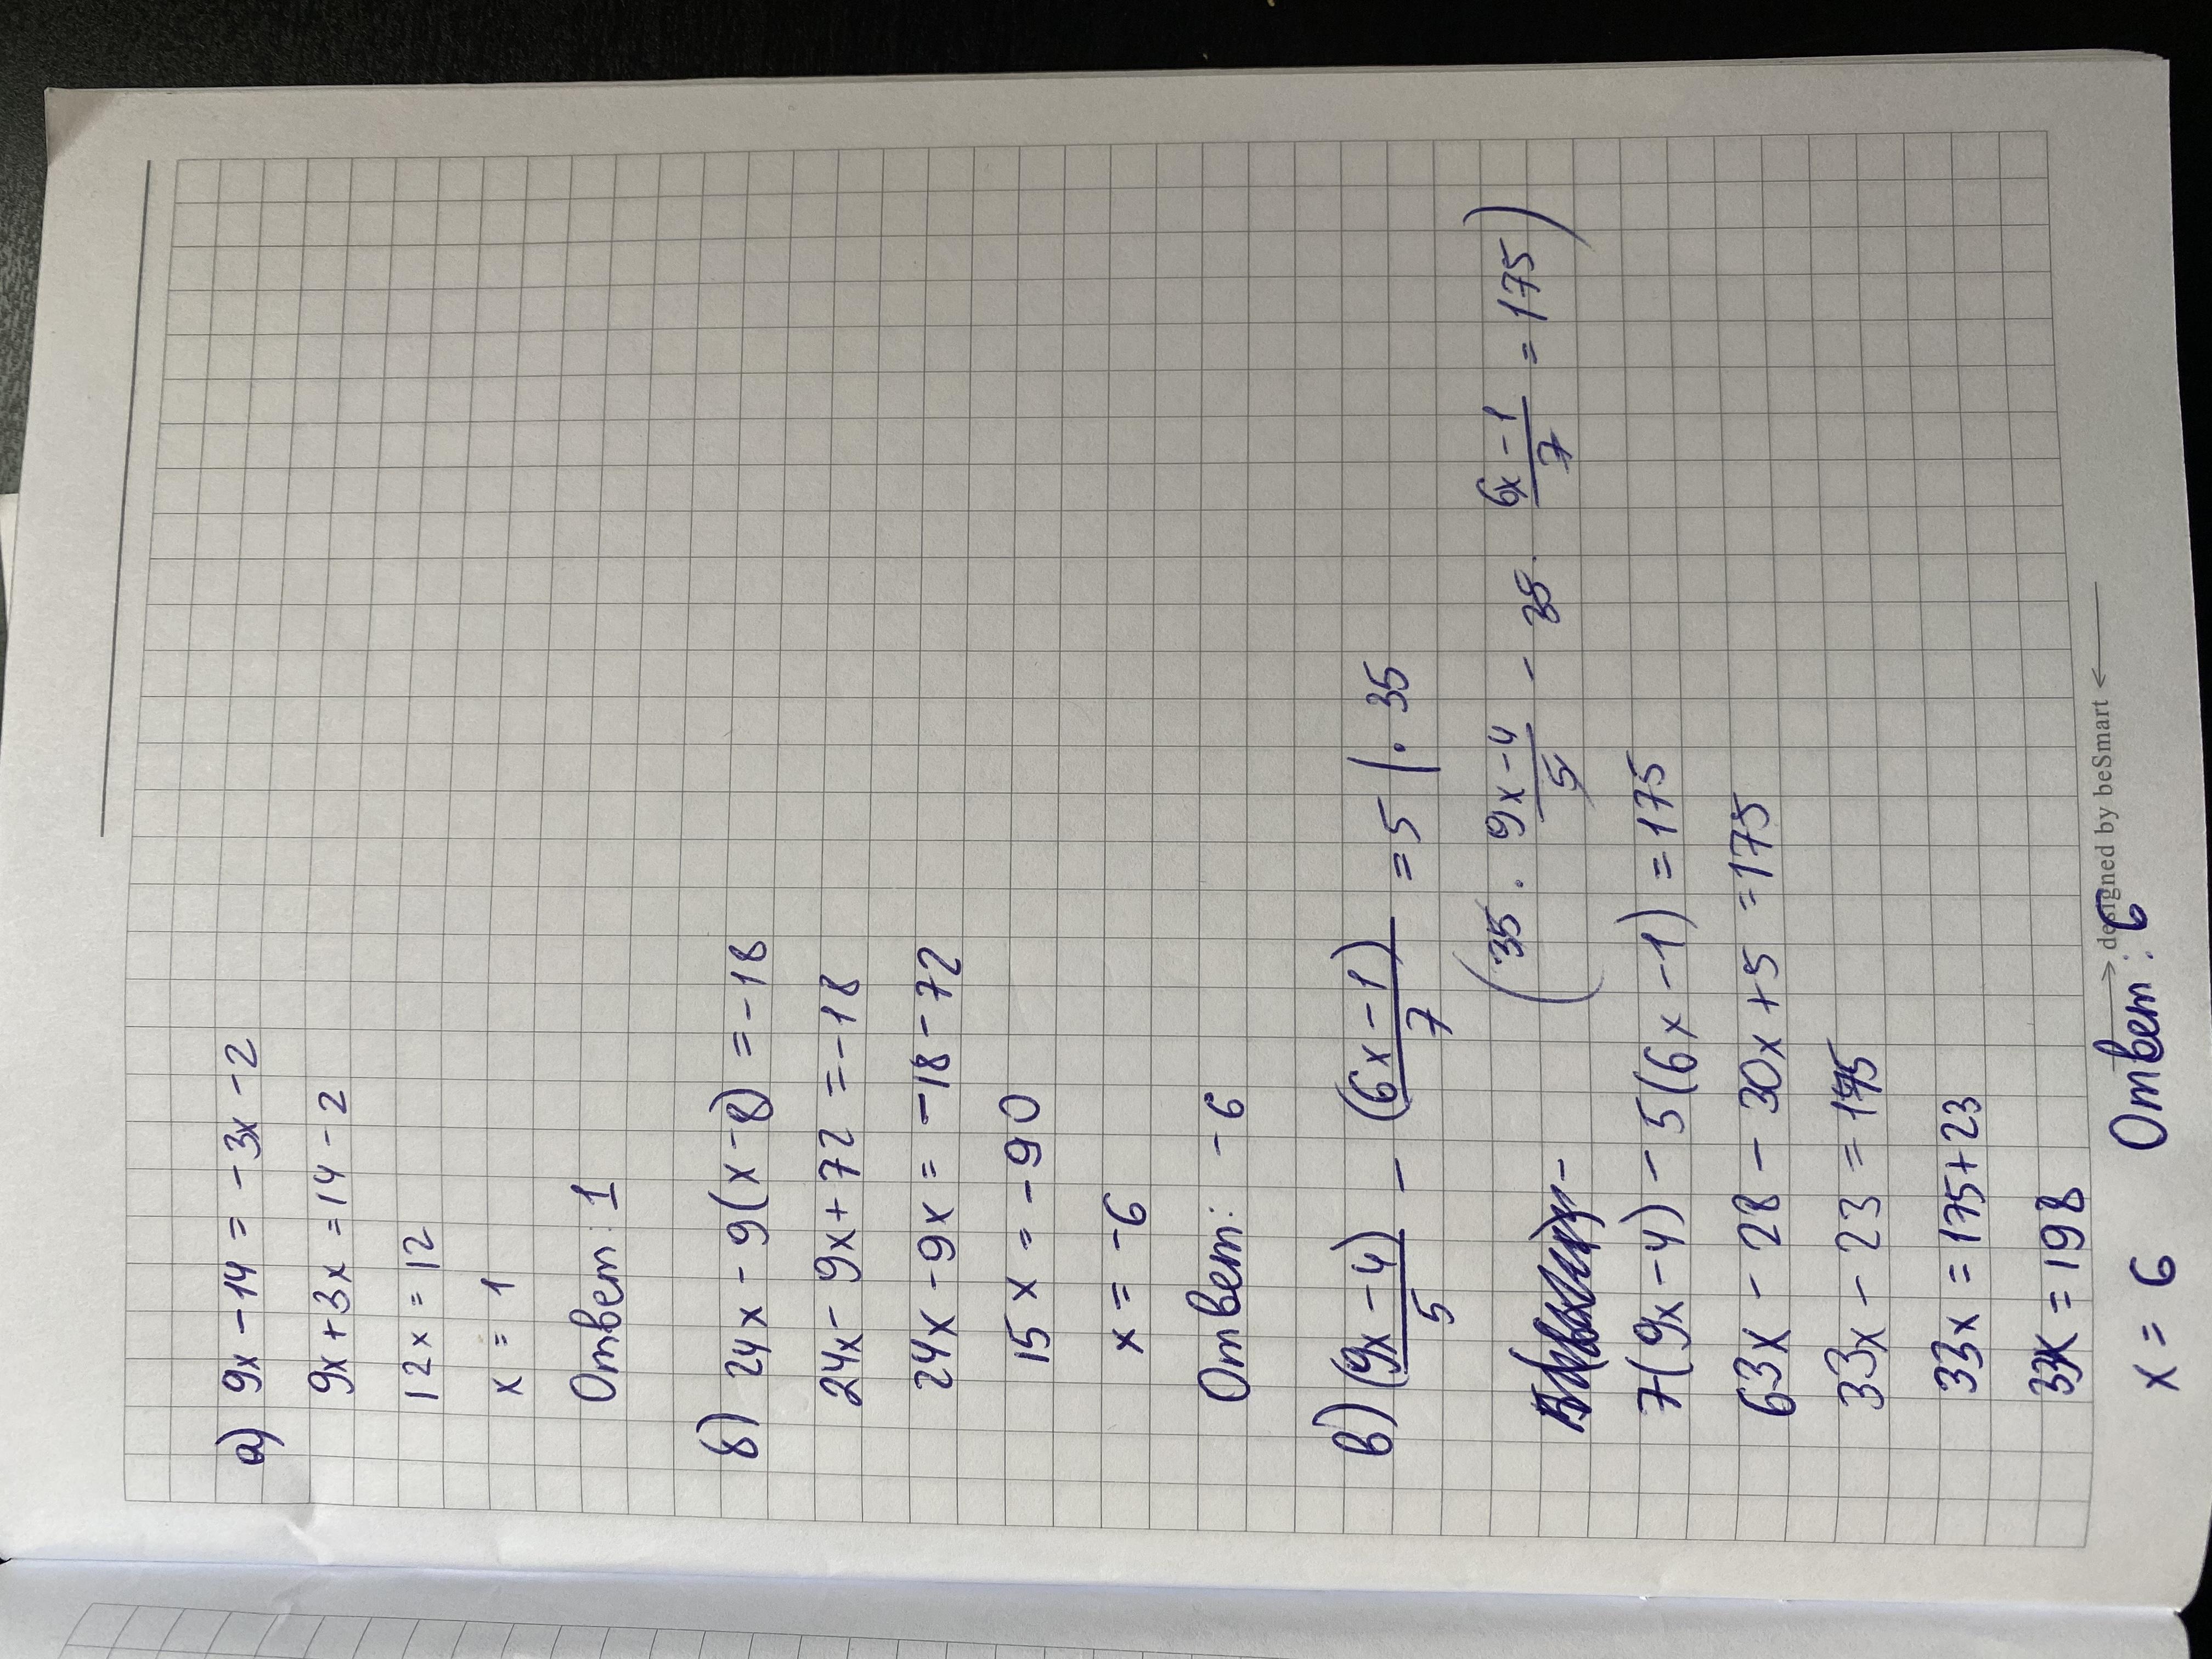 а) 9x - 14 = -3x - 2
9x + 3x = 14 - 2
12x = 12
x = 1
Ответ: 1
б) 24x - 9(x - 8) = -18
24x - 9x + 72 = -18
24x - 9x = -18 - 72
15x = -90
x = -6
Ответ: -6
в) (9x - 4)/5 - (6x - 1)/7 = 5 | · 35
(35 · 9x - 4/5 - 35 · 6x - 1/7 = 175)
7(9x - 4) - 5(6x - 1) = 175
63x - 28 - 30x + 5 = 175
33x - 23 = 175
33x = 175 + 23
33x = 198
designed by beSmart
x = 6 Ответ: 6